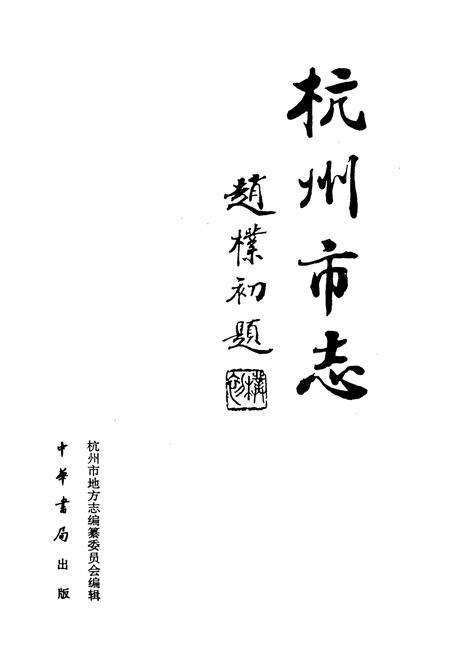 杭州市志
趙樸初題
杭州市地方志编纂委员会编辑
中華書局出版